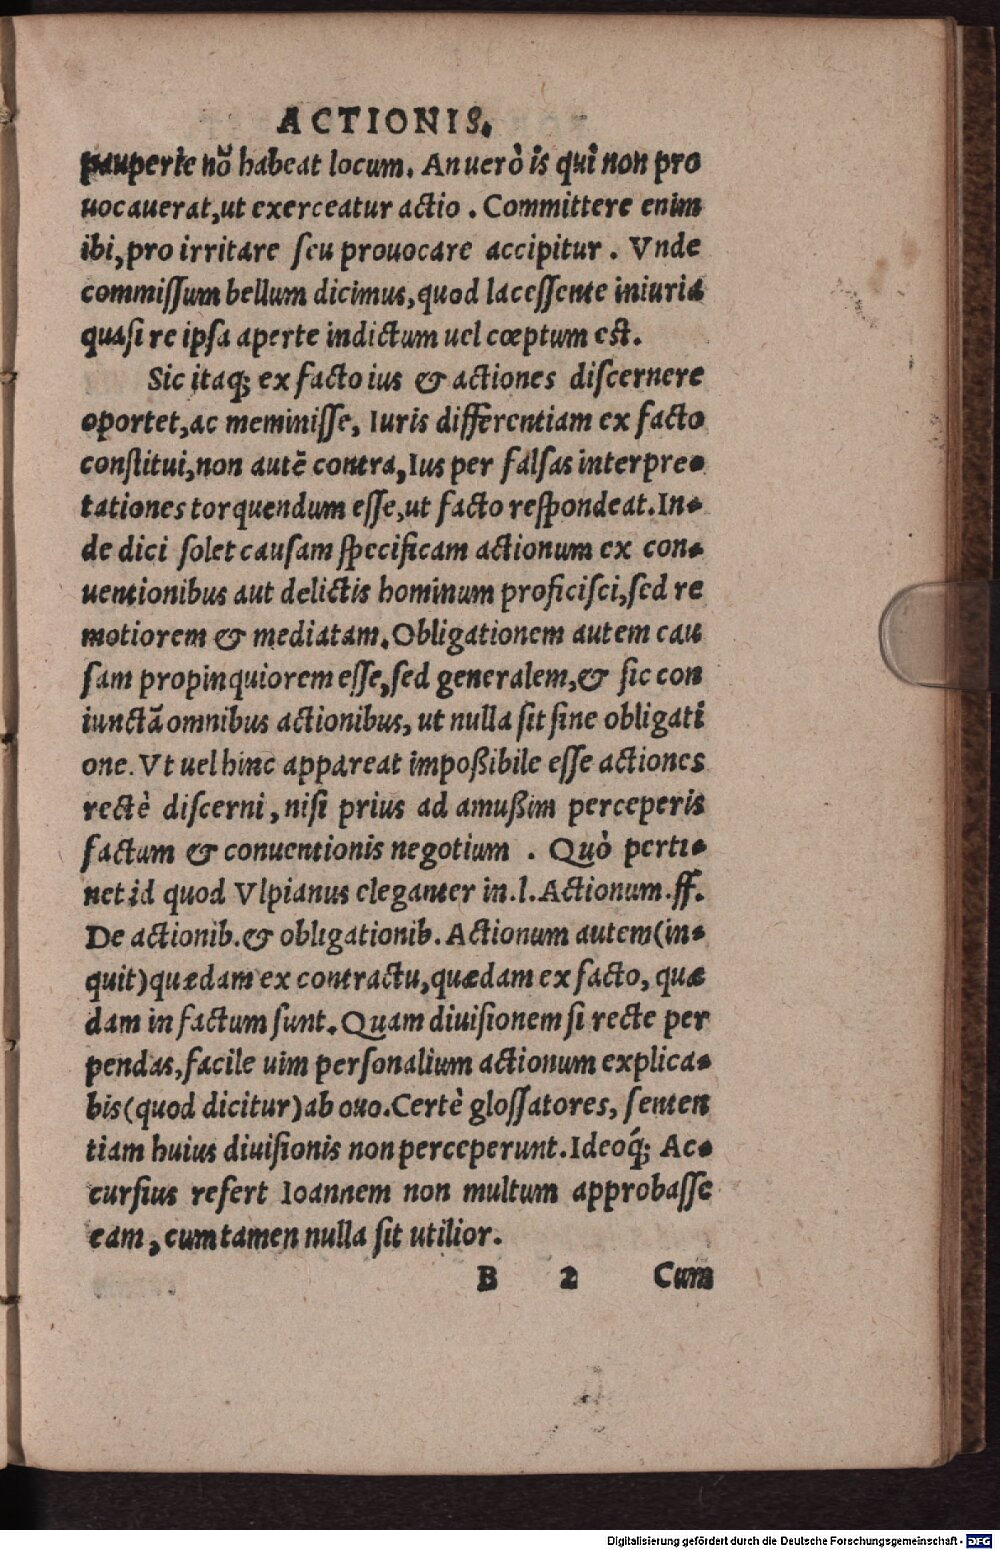 ACTIONIS.
pauperie nõ habeat locum. An uerò is qui non pro
uocauerat, ut exerceatur actio. Committere enim
ibi, pro irritare ſeu prouocare accipitur. Vnde
commiſſum bellum dicimus, quod laceſſente iniuria
quaſi re ipſa aperte indictum uel cœptum est.
Sic itaq; ex facto ius & actiones diſcernere
oportet, ac meminiſſe, Iuris differentiam ex facto
conſtitui, non autẽ contra, Ius per falſas interpre-
tationes torquendum eſſe, ut facto reſpondeat. In-
de dici ſolet cauſam ſpecificam actionum ex con-
uentionibus aut delictis hominum proficiſci, ſed re
motiorem & mediatam. Obligationem autem cau
ſam propinquiorem eſſe, ſed generalem, & ſic con
iunctã omnibus actionibus, ut nulla ſit ſine obligati
one. Vt uel hinc appareat impoßibile eſſe actiones
rectè diſcerni, niſi prius ad amußim perceperis
factum & conuentionis negotium. Quò perti-
net id quod Vlpianus eleganter in.l. Actionum.ff.
De actionib. & obligationib. Actionum autem (in-
quit) quædam ex contractu, quædam ex facto, quæ
dam in factum ſunt. Quam diuiſionem ſi recte per
pendas, facile uim perſonalium actionum explica-
bis (quod dicitur) ab ouo. Certè gloſſatores, ſenten
tiam huius diuiſionis non perceperunt. Ideoq́; Ac-
curſius refert Ioannem non multum approbaſſe
eam, cum tamen nulla ſit utilior.
B 2 Cum
Digitalisierung gefördert durch die Deutsche Forschungsgemeinschaft - DFG